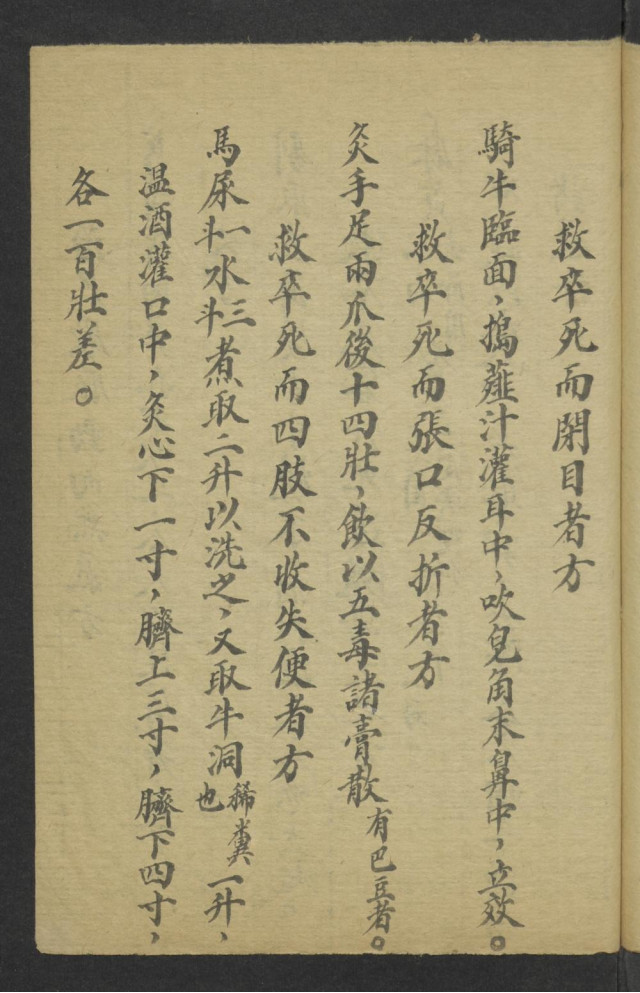 救卒死而閉目者方
騎牛臨面，搗薤汁灌耳中，吹皂角末鼻中，立效。
救卒死而張口反折者方
灸手足兩爪後十四壯，飲以五毒諸膏散有巴豆者。
救卒死而四肢不收失便者方
馬尿一斗水三斗煮取二升以洗之，又取牛洞稀糞也一升，
温酒灌口中，灸心下一寸，臍上三寸，臍下四寸，
各一百壯差。